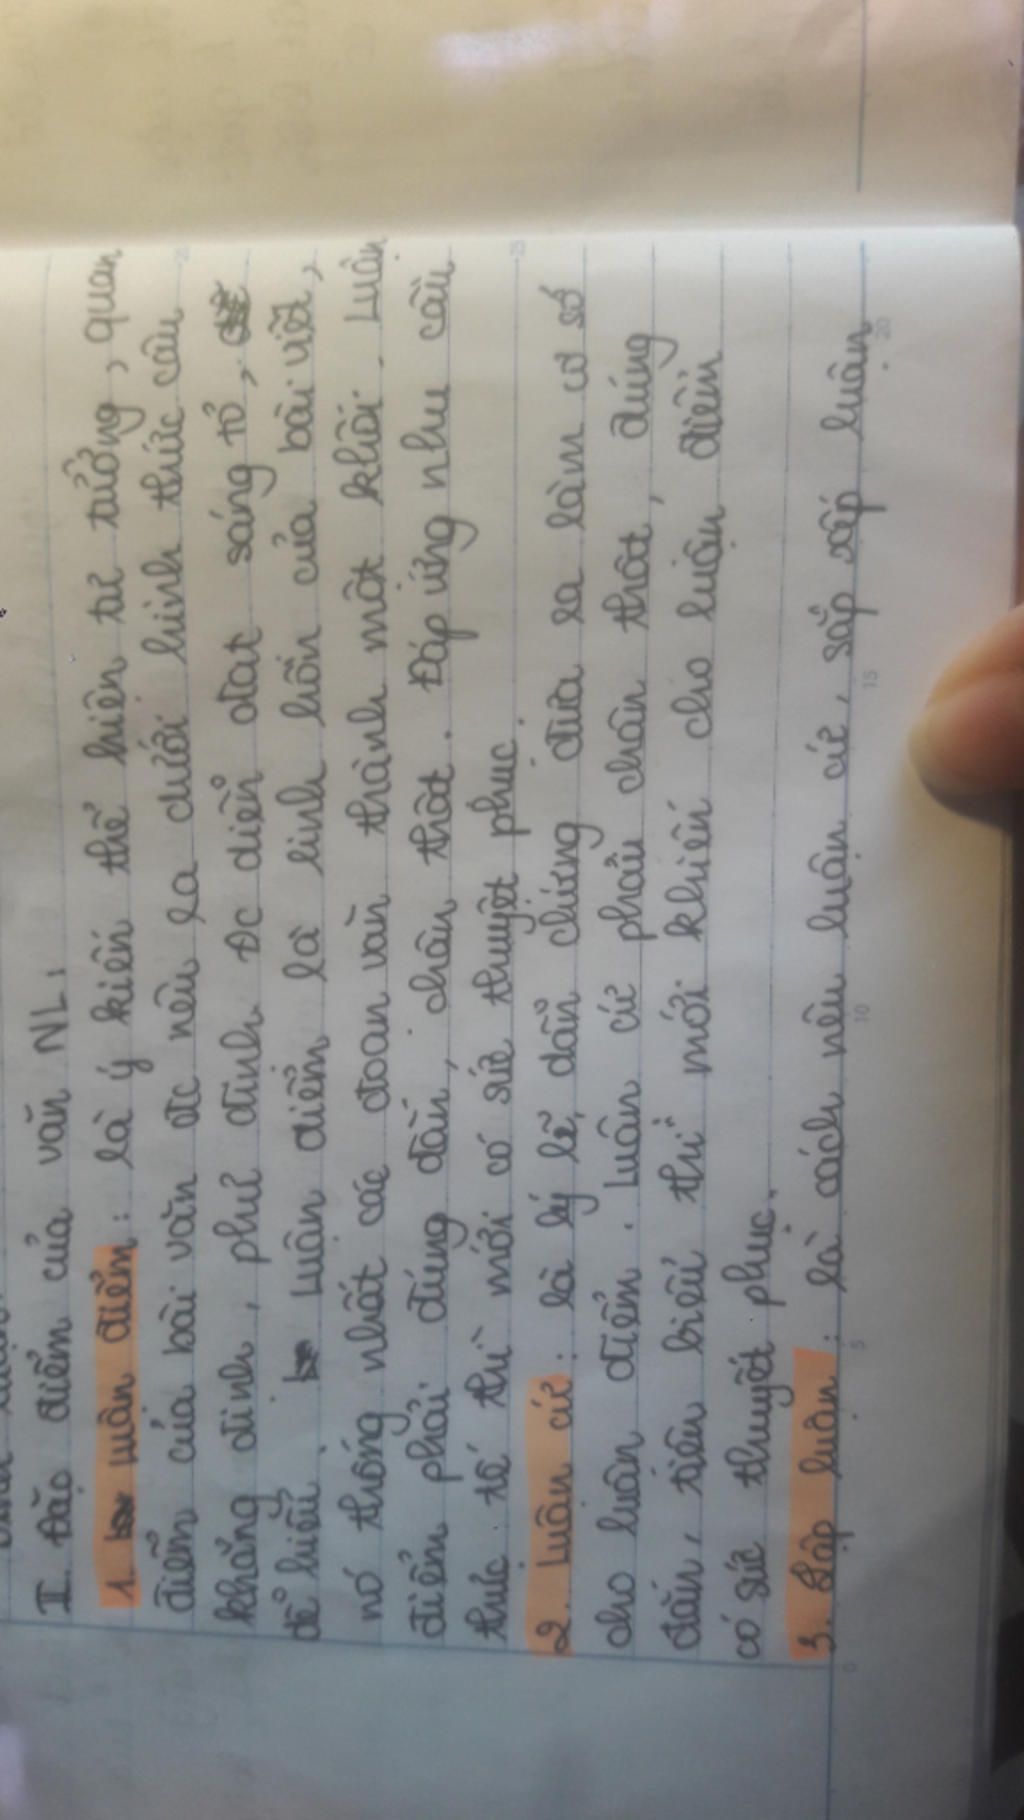 II. Đặc điểm của văn NL:
1. Luận điểm: là ý kiến thể hiện tư tưởng, quan
điểm của bài văn đc nêu ra dưới hình thức câu
khẳng định, phủ định. Đc diễn đạt sáng tỏ,
dễ hiểu. Luận điểm là linh hồn của bài viết,
nó thống nhất các đoạn văn thành một khối. Luận
điểm phải đúng đắn, chân thật. Đáp ứng nhu cầu
thực tế thì mới có sức thuyết phục.
2. Luận cứ: là lý lẽ, dẫn chứng đưa ra làm cơ sở
cho luận điểm. Luận cứ phải chân thật, đúng
đắn, tiêu biểu thì mới khiến cho luận điểm
có sức thuyết phục.
3. Lập luận: là cách nêu luận cứ, sắp xếp luận